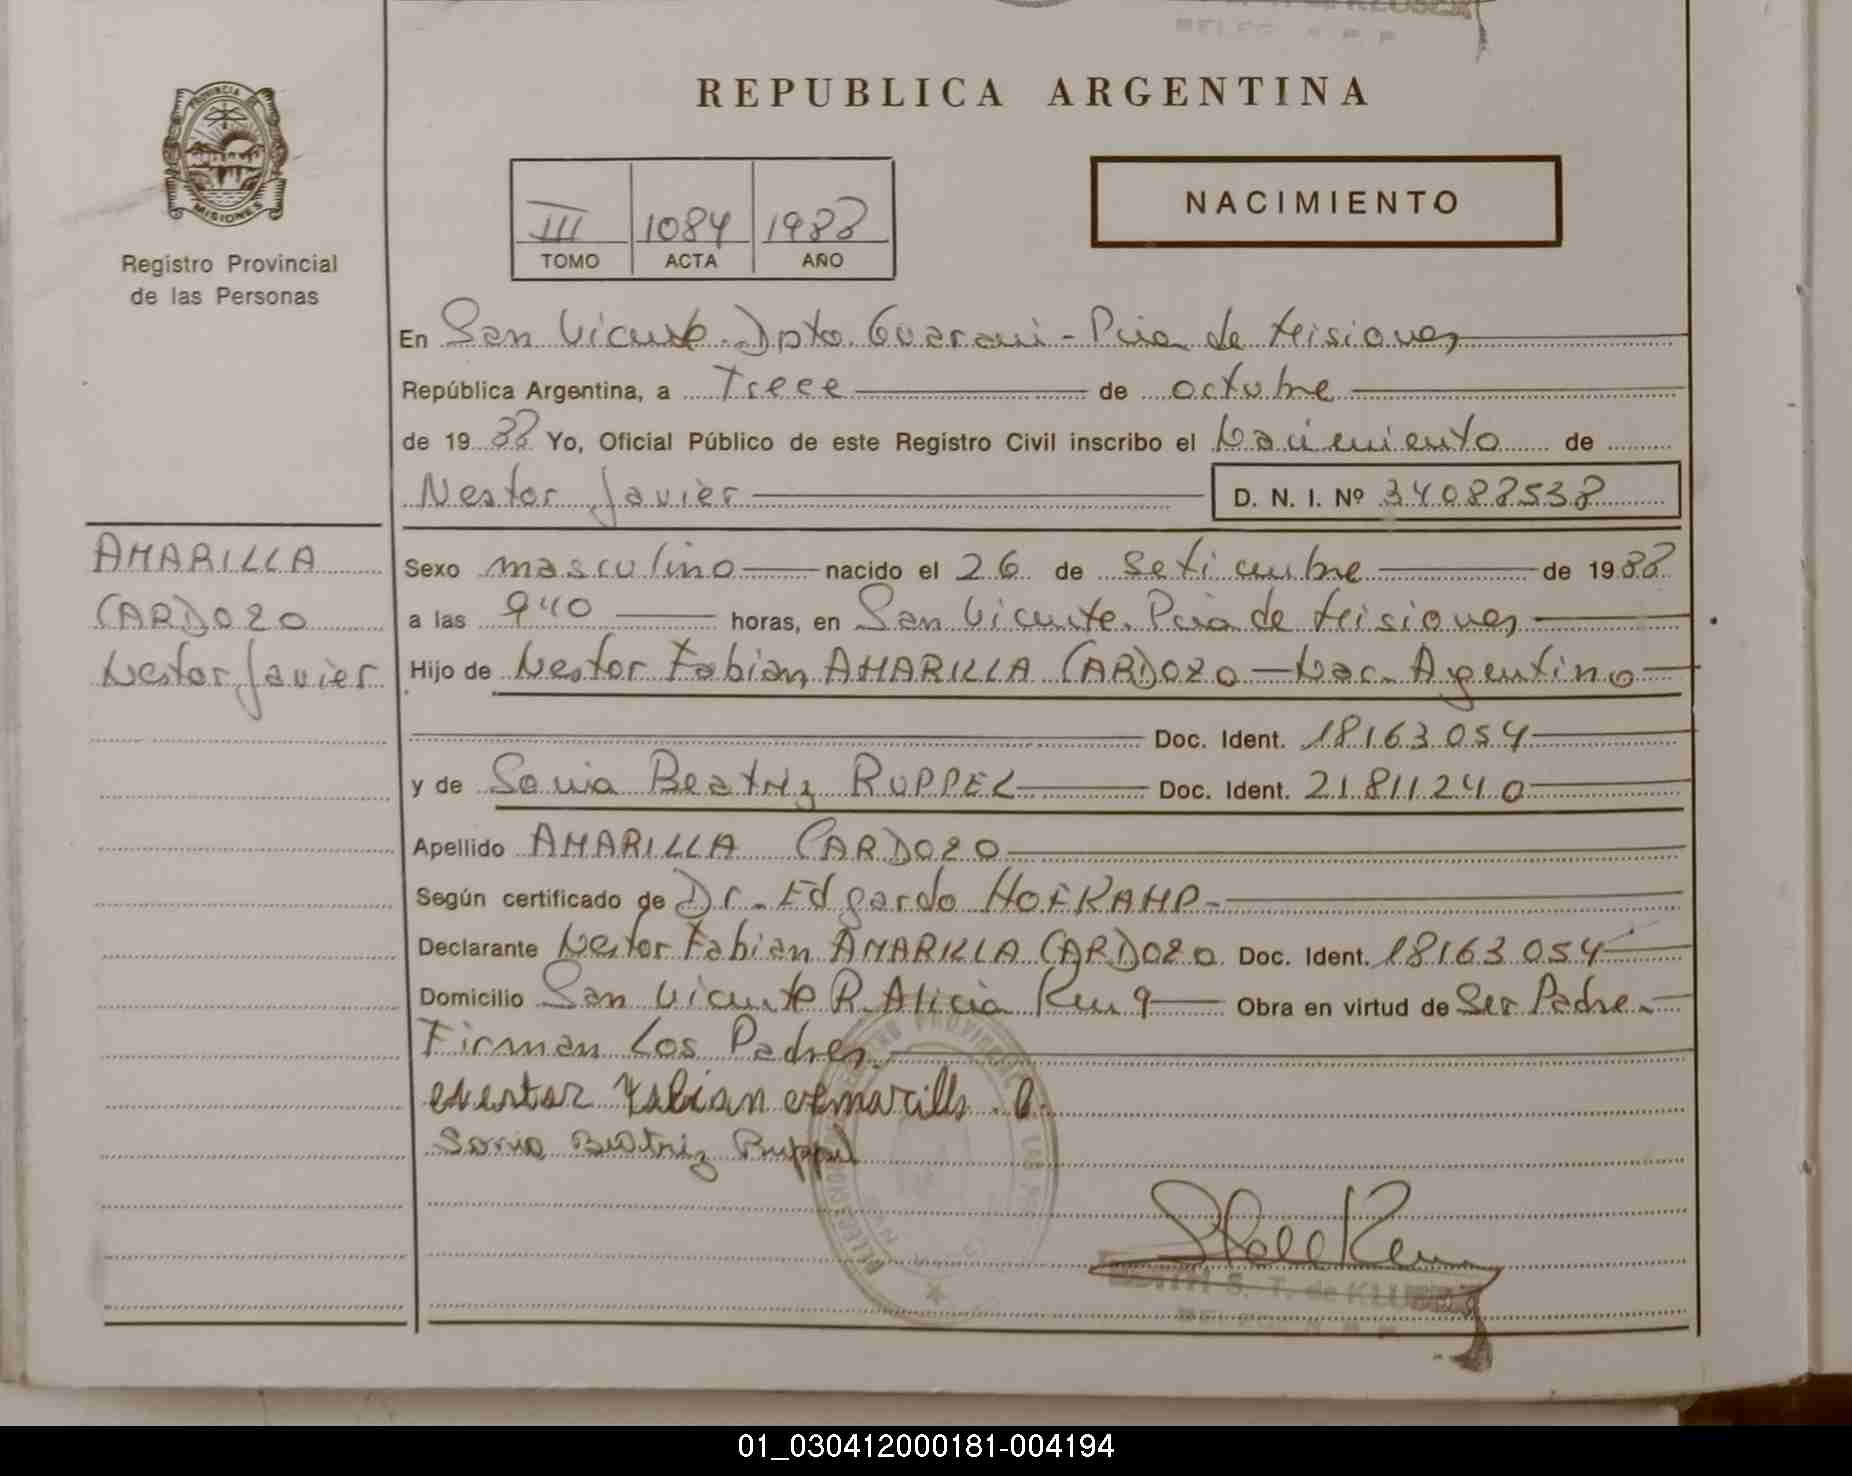 REPUBLICA ARGENTINA
PROVINCIA DE
MISIONES
Registro Provincial
de las Personas
III 1084 1988
TOMO ACTA AÑO
NACIMIENTO
En San Vicente. Dpto. Guarani - Pcia de Misiones
República Argentina, a Trece de octubre
de 19 88 Yo, Oficial Público de este Registro Civil inscribo el Nacimiento de
Nestor Javier D. N. I. Nº 34088538
AMARILLA
CARDOZO
Nestor Javier
Sexo masculino nacido el 26 de setiembre de 1988
a las 9 40 horas, en San Vicente. Pcia de Misiones
Hijo de Nestor Fabian AMARILLA CARDOZO - Nac. Argentino
Doc. Ident. 18163054
y de Sonia Beatriz RUPPEL Doc. Ident. 21811240
Apellido AMARILLA CARDOZO
Según certificado de Dr. Edgardo HOFKAMP
Declarante Nestor Fabian AMARILLA CARDOZO Doc. Ident. 18163054
Domicilio San Vicente R. Alicia Km 9 Obra en virtud de Ser Padre.
Firman Los Padres.
Nestor Fabian Amarilla C.
Sonia Beatriz Ruppel
S. T. de
01_030412000181-004194